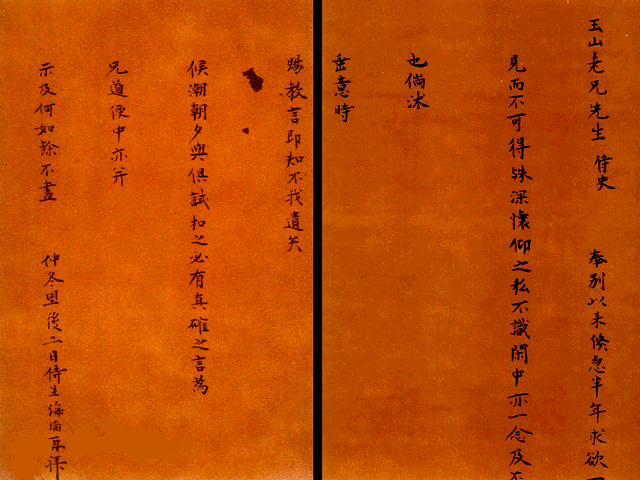 玉山老兄先生 侍史 奉别以来倏忽半年求欲一
見而不可得殊深懷仰之私不識閑中亦一念及不
也倘沐
垂意時
賜教言即知不我遺矣
候潮朝夕與俱試扣之必有真確之言為
兄道便中亦并
示及何如餘不盡 仲冬 後二日侍生海瑞再拜